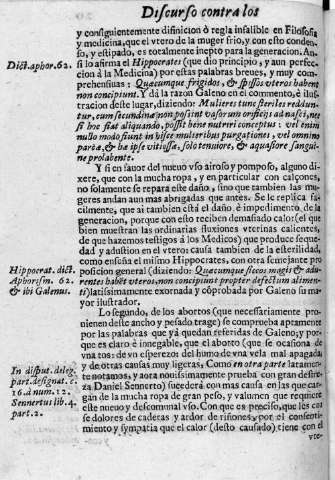 Discurso contra los
y consiguientemente difinicion ò regla infalible en Filosofia
y medicina, que el vtero de la muger frio, y con esto conden-
so, y estipado, es totalmente inepto para la generacion. An-
Dict. aphor. 62. si lo afirma el Hippocrates (que dio principio, y aun perfec-
cion à la Medicina) por estas palabras breves, y muy com-
prehensiuas: Quæcumque frigidos, & spissos vteros habent
non concipiunt. Y dà la razon Galeno en el commento, è ilus-
tracion deste lugar, diziendo: Mulieres tunc steriles reddun-
tur, cum secundinæ non possint vasorum orificijs adnasci, nec
si hoc fiat aliquando, possit bene nutriri conceptus: vel enim
nullo modo fiunt in hisce mulieribus purgationes, vel omnino
parcæ, & hæ ipsæ vitiosæ, solo tenuiore, & aquosiore sangui-
ne prolabente.
Y si en fauor del nueuo vso airoso y pomposo, alguno di-
xere, que con la mucha ropa, y en particular con calçones,
no solamente se repara este daño, sino que tambien las mu-
geres andan aun mas abrigadas que antes. Se le replica fa-
cilmente, que ai tambien està el daño, è impedimento, de la
generacion, porque con esto reciben demasiado calor (el que
bien muestran las ordinarias fluxiones vterinas calientes,
de que hazemos testigos à los Medicos) que produce seque-
dad y adustion en el vtero causa tambien de la esterilidad,
como enseña el mismo Hippocrates, con otra semejante pro
Hippocrat. dict. posicion general (diziendo: Quæcumque siccos magis & adu-
Aphorism. 62. rentes habet vteros, non concipiunt propter defectum alimen-
& ibi Galenus. ti) latissimamente exornada y comprobada por Galeno su ma-
yor ilustrador.
Lo segundo, de los abortos (que necessariamente pro-
uienen deste ancho y pesado trage) se comprueba apramente
por las palabras que ya quedan referidas de Galeno; y por-
que es claro è innegable, que el aborto (que se ocasiona de
vna tos: de vn esperezo: del humo de vna vela mal apagada
In disput. deleg. y de otras causas muy ligeras, Como en otra parte latamen-
part. designat. c. te notamos, y aora nouissimamente prueba con gran destre-
16. à num. 12. za Daniel Sennerto) sucederà con mas causa en las que car-
Sennertus lib. 4. gan de la mucha ropa de gran peso, y valumen que requiere
part. 2. este nueuo y descomunal vso. Con que es preciso, que les cau
se dolores de caderas y ardor de riñones, y por el consenti-
miento y sympatia que el calor (desto causado) tiene con el
vte-